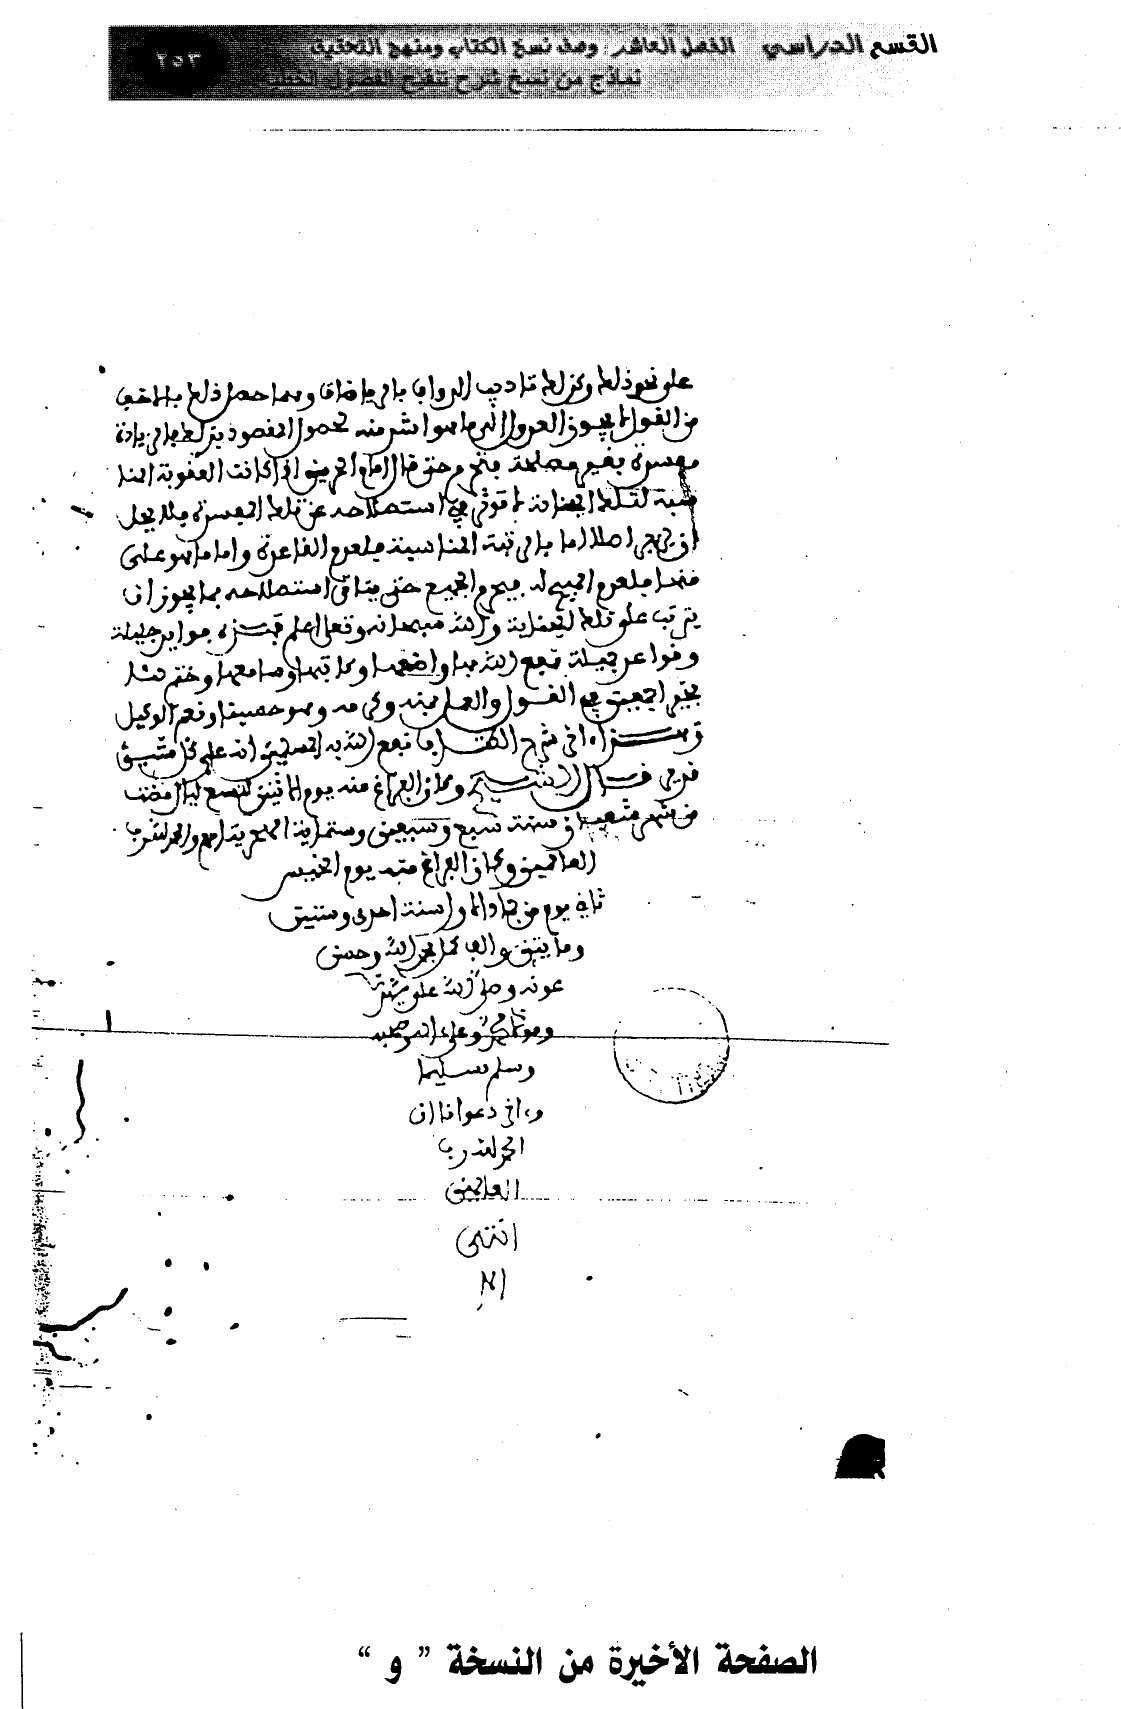 القسم الدراسي الفصل العاشر : وصف نسخ الكتاب ومنهج التحقيق
٢٥٣
نماذج من نسخ شرح تنقيح الفصول الخطية
على نحو ذلك وكذلك تاديب الدواب بالرياضات ومهما حصل ذلك بالاخف
من القول لا يجوز العدول الى ما هو اشد منه لحصول المقصود بذلك فالزيادة
مفسدة بغير مصلحة فتحرم حتى قال امام الحرمين اذا كانت العقوبة المنا
سبة لتلك الجناية لا تؤثر في استصلاحه عن تلك المفسدة فلا يحل
ان يزجر اصلا اما بالرتبة المناسبة فلعدم الفائدة واما ما هو اعلى
منها فلعدم المبيح له فيحرم الجميع حتى يتاتى استصلاحه بما يجوز ان
يترتب على تلك الجناية والله سبحانه وتعالى اعلم فهذه فوايد جليلة
وقواعد جميلة نفع الله بها واضعها وكاتبها وسامعها وختم لنا
بخير اجمعين في القول والعمل بمنه وكرمه وهو حسبنا ونعم الوكيل
وهذا اخر شرح الكتاب نفع الله به المسلمين انه على كل شيء
قدير قال الشيخ وكان الفراغ منه يوم الاثنين لتسع ليال مضت
من شهر شعبان سنة سبع وسبعين وستماية والحمد لله رب
العالمين وكان الفراغ منه يوم الخميس
ثاني يوم من جمادى الاولى سنة احدى وستين
ومايتين والف كمل بحمد الله وحسن
عونه وصلى الله على سيدنا
ومولانا محمد وعلى اله وصحبه
وسلم تسليما
واخر دعوانا ان
الحمد لله رب
العالمين
انتهى
الصفحة الأخيرة من النسخة " و "